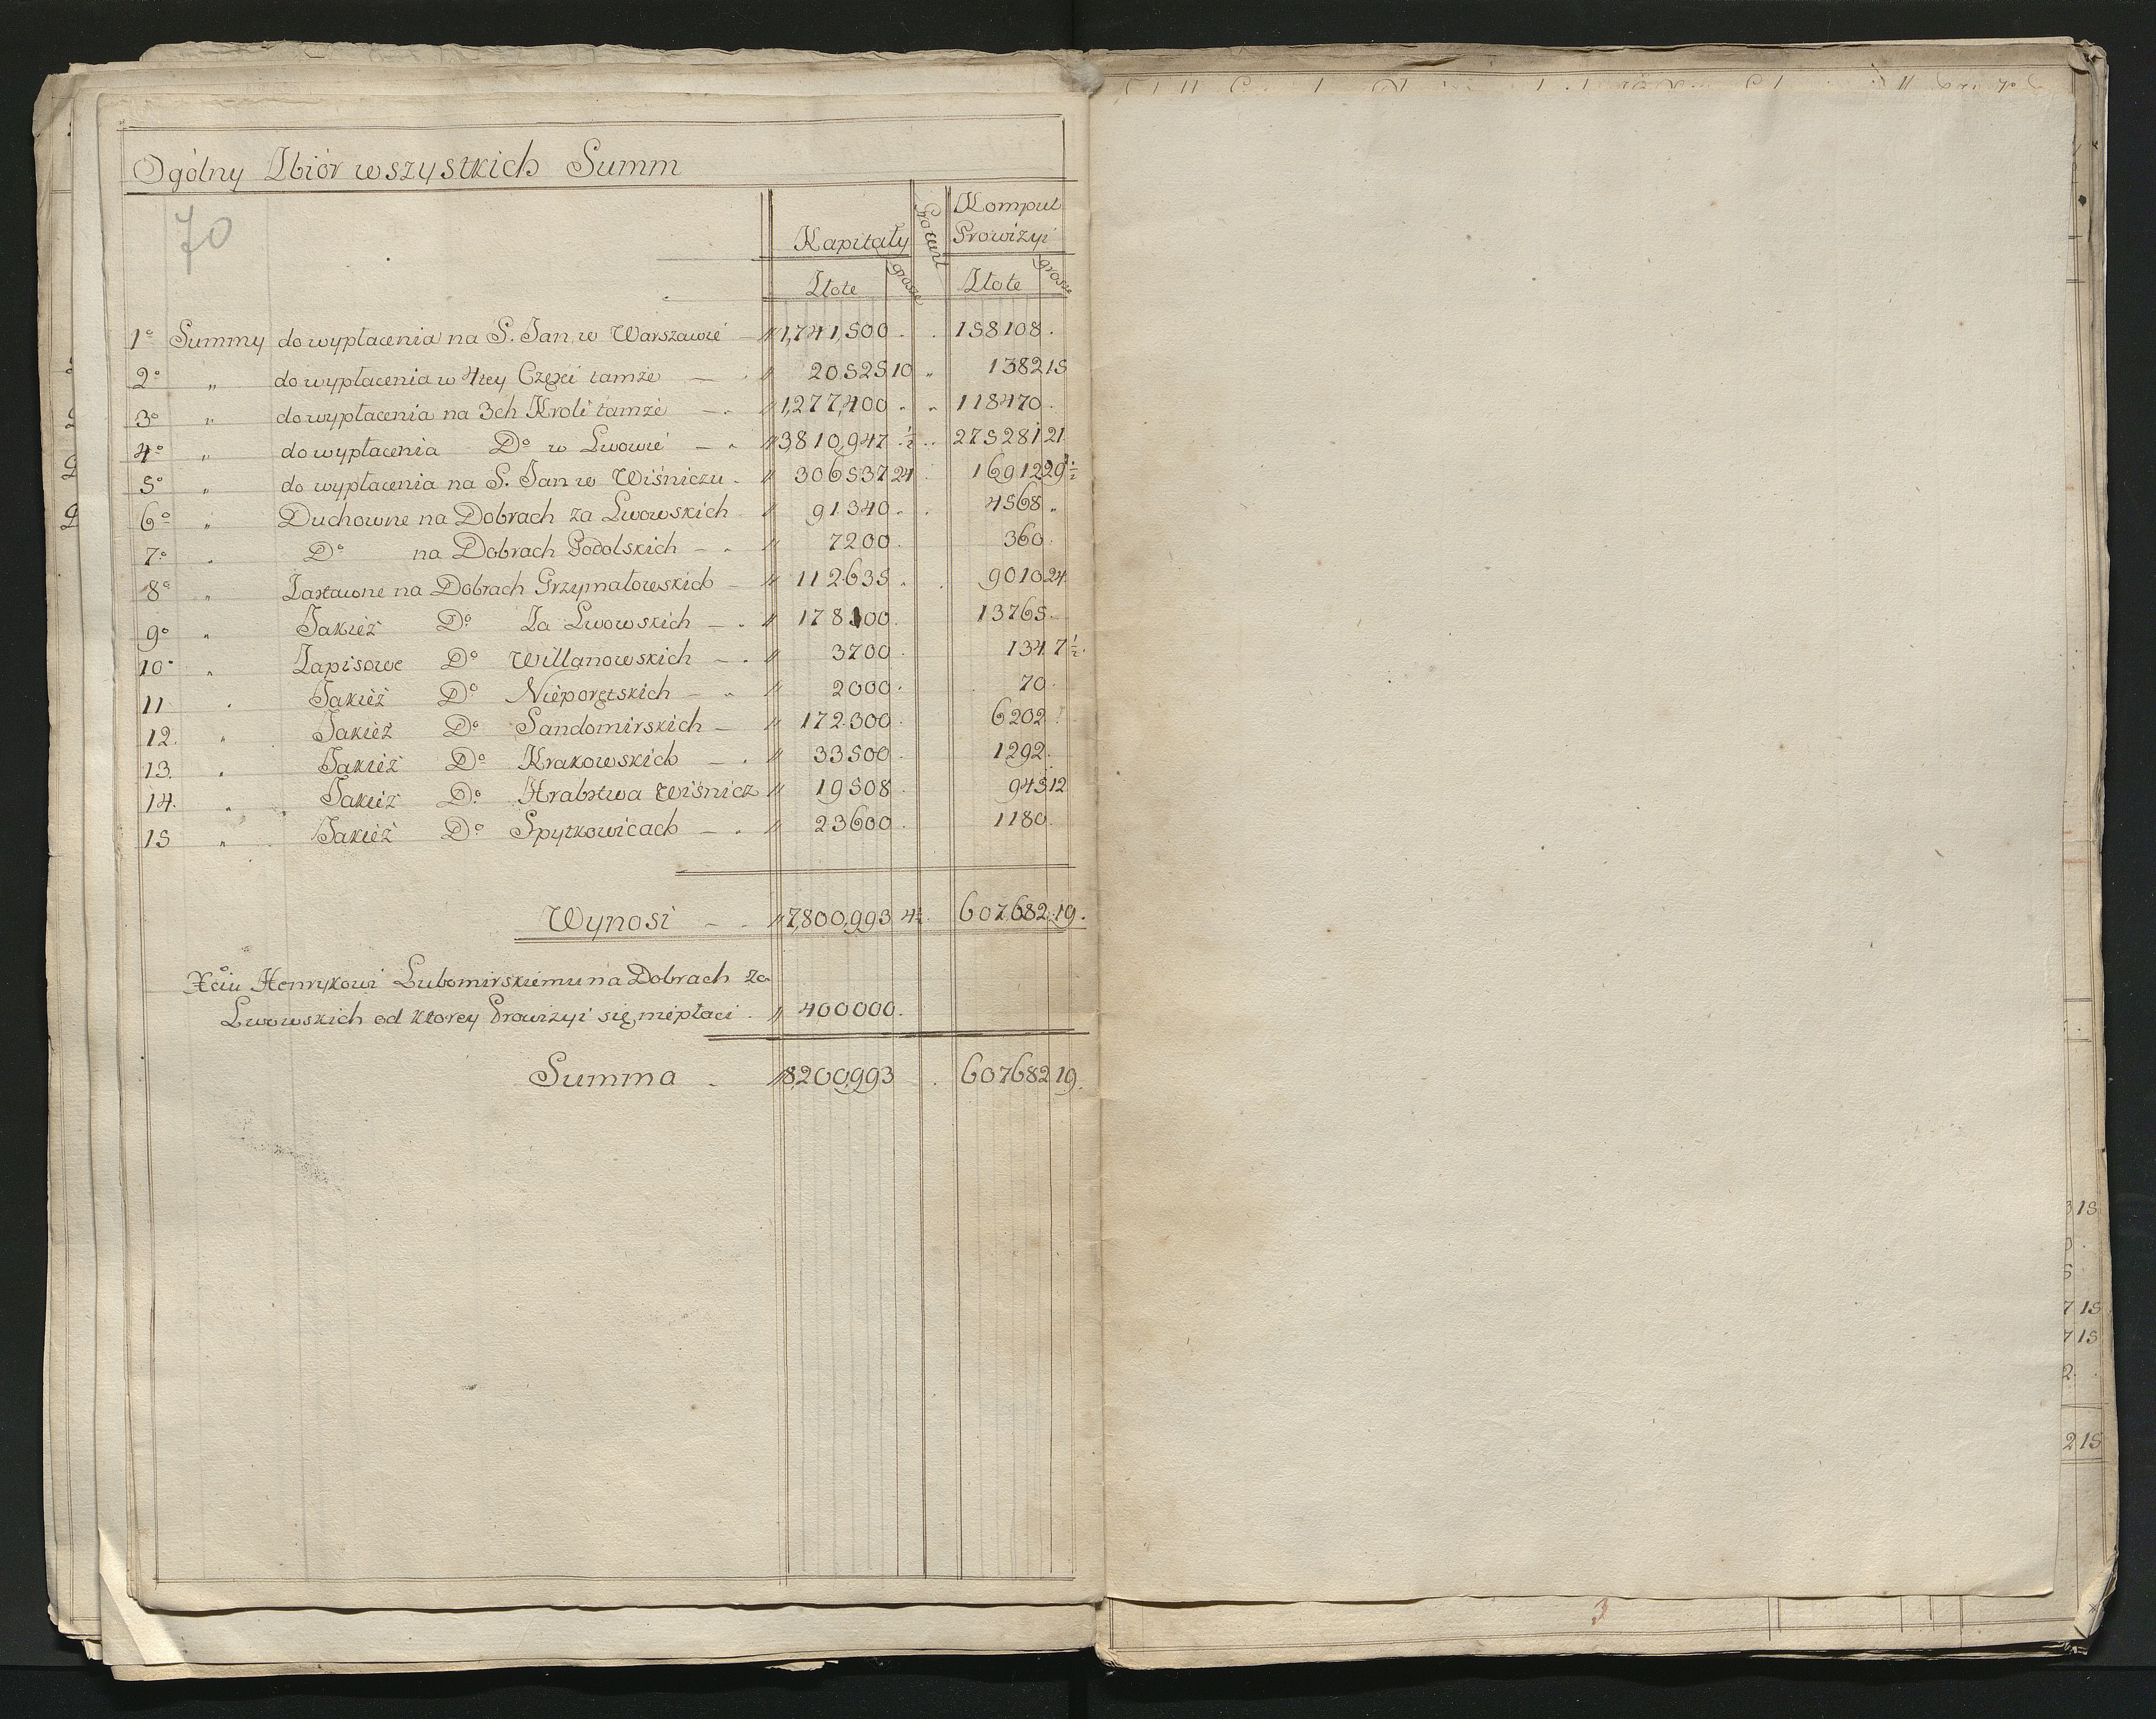 Ogólny Zbiór wszystkich Summ
70
Kapitały
Komput
Prowizyi
Złote
Złote
1o Summy do wypłacenia na S. Jan w Warszawie — // 1,741,500 . . 158108 .
2o „ do wypłacenia w 4tey Częxi tamże — . // 20525 10 „ 1382 15
3o „ do wypłacenia na 3ch Kroli tamże — . // 1,277,400 . „ 118470 .
4o „ do wypłacenia Do w Lwowie — „ // 3,810,947 ½ .. 275281 21
5o „ do wypłacenia na S. Jan w Wiśniczu . // 306537 24 16912 29½
6o „ Duchowne na Dobrach za Lwowskich // 91340 . . 4568 „
7o „ Do na Dobrach Podolskich — . // 7200 . 360 .
8o „ Zastawne na Dobrach Grzymałowskich — // 112635 . . 9010 24
9o „ Takież Do Za Lwowskich — . // 178100 13765 .
10o „ Zapisowe Do Willanowskich — . // 3700 . 134 7½
11 „ Takież Do Nieporętskich — „ // 2000 . 70 .
12. „ Takież Do Sandomirskich — // 172300 . 6202 .
13. „ Takież Do Krakowskich — . // 33500 . 1292 .
14. „ Takież Do Hrabstwa Wiśnicz // 19508 . 945 12
15 „ Takież Do Spytkowicach — . // 23600 . 1180 .
Wynosi — . // 7,800,993 4½ . 607,682 . 19 .
Xciu Henrykowi Lubomirskiemu na Dobrach za
Lwowskich od ktorey Prowizyi się niepłaci . // 400000 .
Summa . // 8,200,993 . 607682 19 .
3 15
7 15
7 15
2 .
2 15
3